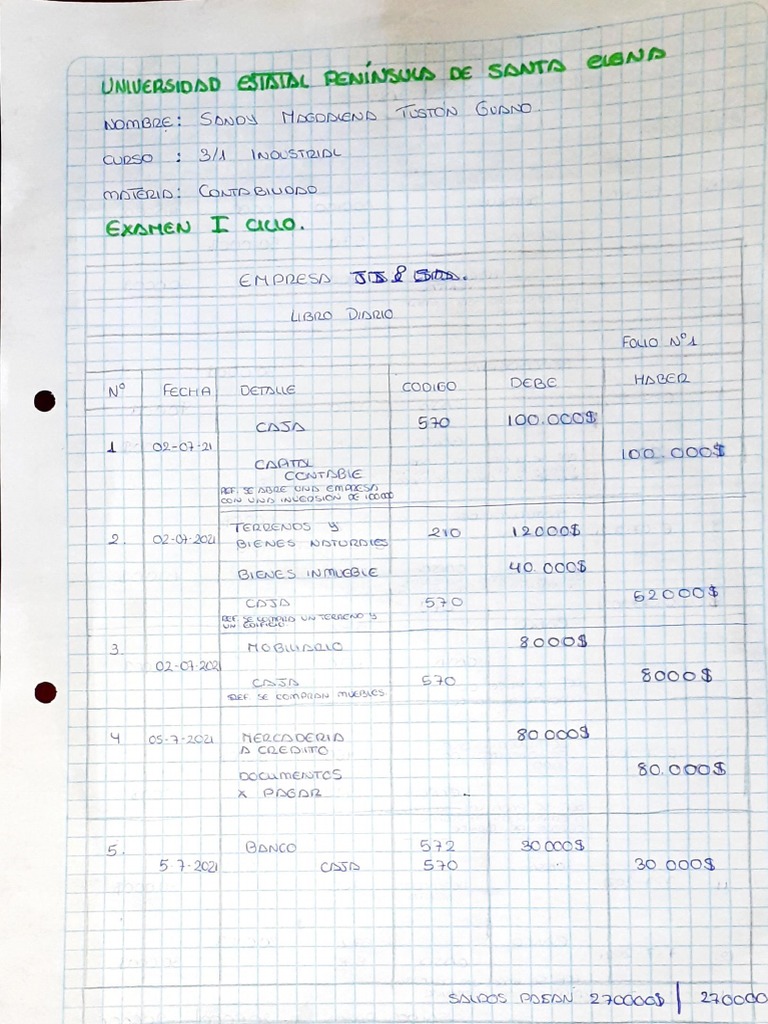 UNIVERSIDAD ESTATAL PENÍNSULA DE SANTA ELENA
NOMBRE: SANDY MAGDALENA TUSTÓN GUANO
CURSO : 3/1 INDUSTRIAL
MATERIA: CONTABILIDAD
EXAMEN I CICLO.
EMPRESA
LIBRO DIARIO
FOLIO Nº1
Nº FECHA DETALLE CODIGO DEBE HABER
CAJA 570 100.000$
1 02-07-21 100.000$
CAPITAL
CONTABLE
REF. SE ABRE UNA EMPRESA
CON UNA INVERSION DE 100000
TERRENOS Y 210 12000$
2. 02-07-2021 BIENES NATURALES
BIENES INMUEBLE 40.000$
CAJA 570 52000$
REF. SE COMPRA UN TERRENO Y
UN EDIFICIO
3. MOBILIARIO 8000$
02-07-2021
CAJA 570 8000$
REF SE COMPRAN MUEBLES
4 05-7-2021 MERCADERIA 80.000$
A CREDITO
DOCUMENTOS 80.000$
X PAGAR
5. BANCO 572 30000$
5-7-2021 CAJA 570 30.000$
SALDOS PASAN 270000$ | 270000